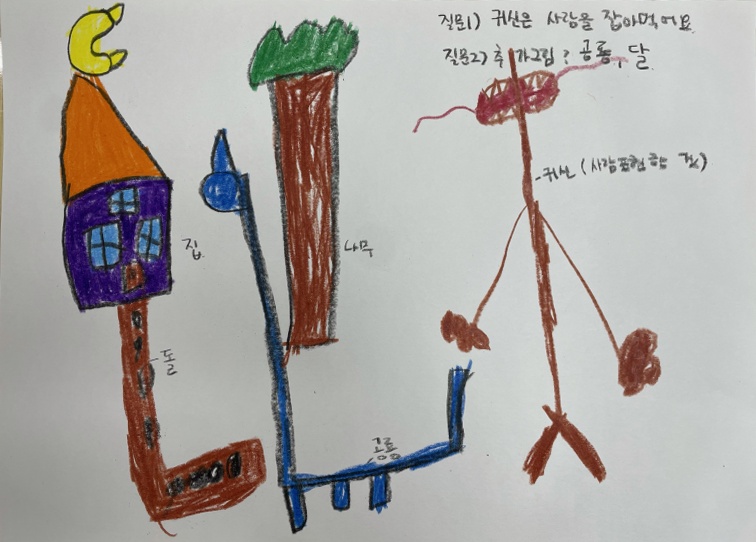 질문1) 귀신은 사람을 잡아먹어요.
질문2) 추가그림? 공룡, 달
-귀신(사람표현한 것)
집
나무
돌
공룡